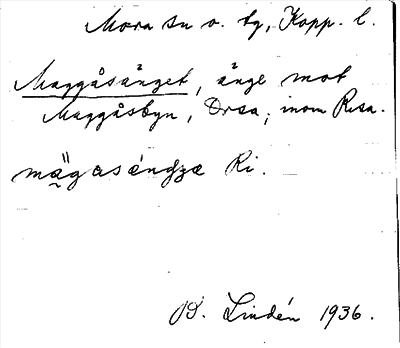 Mora sn o. tg, Kopp. l.
Maggåsänget, änge mot
Maggåsbyn, Orsa, inom Risa.
mä̰gasénʤæ Ri.
B. Lindén 1936.